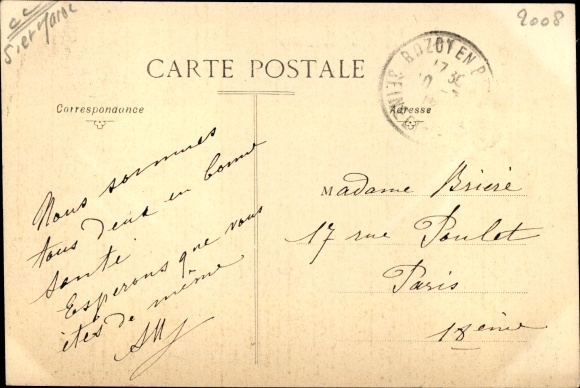 S. et Marne
2008
CARTE POSTALE
ROZOY EN B
SEINE
17 35
Correspondance
Adresse
Nous sommes
tous deux en bonne
santé.
Esperons que vous
êtes de même
Madame Brieré
17 rue Poulet
Paris
18eme